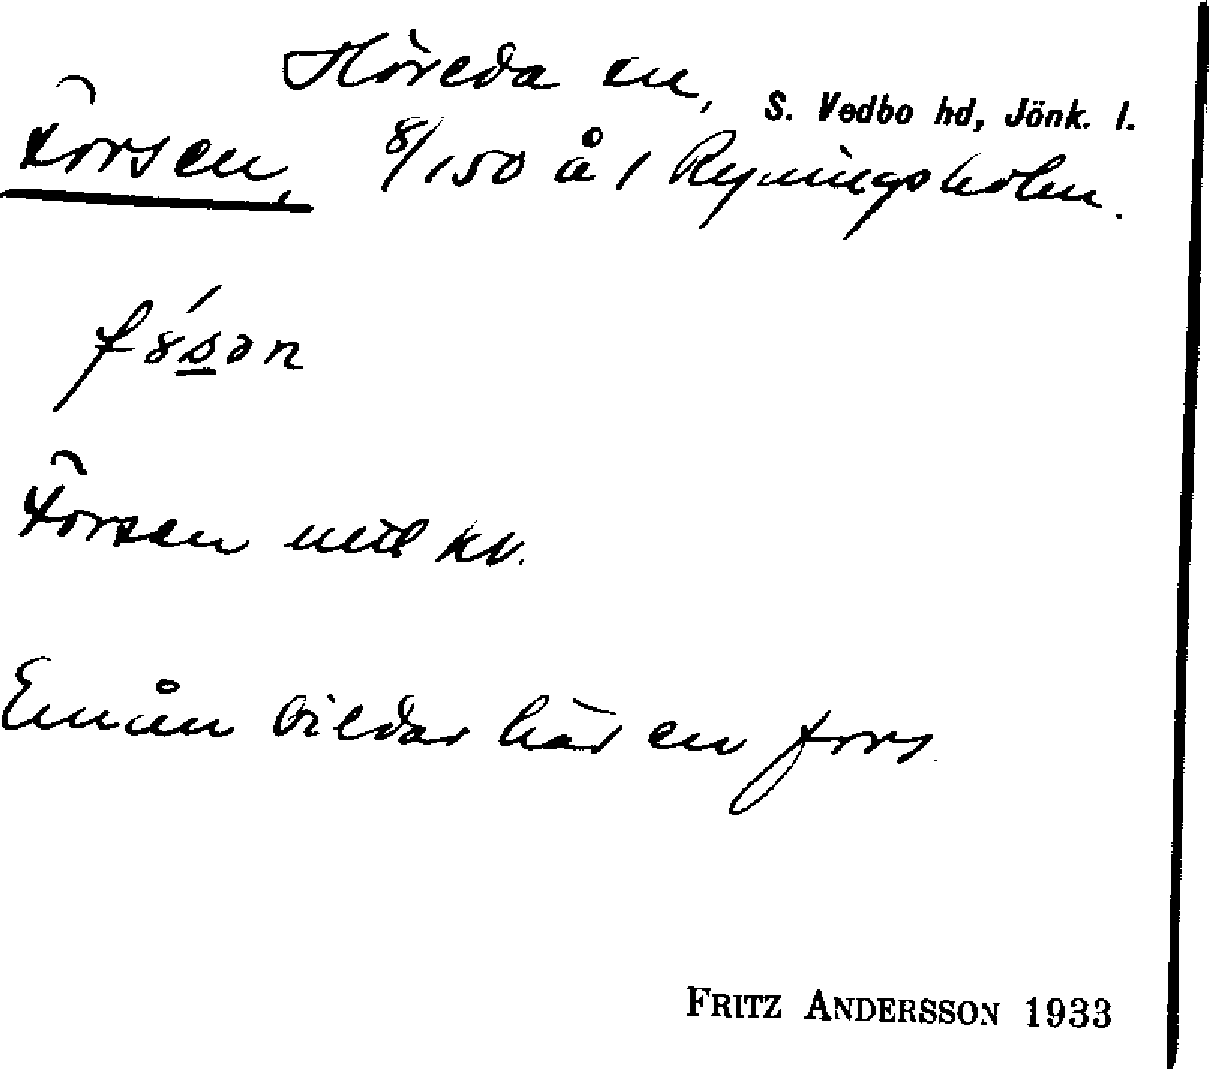 Höreda sn, S. Vedbo hd, Jönk. l.
Forsen, 8/150 å 1 Ryningsholm.
fósən
Forsen utl kv.
Emån bildar här en fors.
FRITZ ANDERSSON 1933